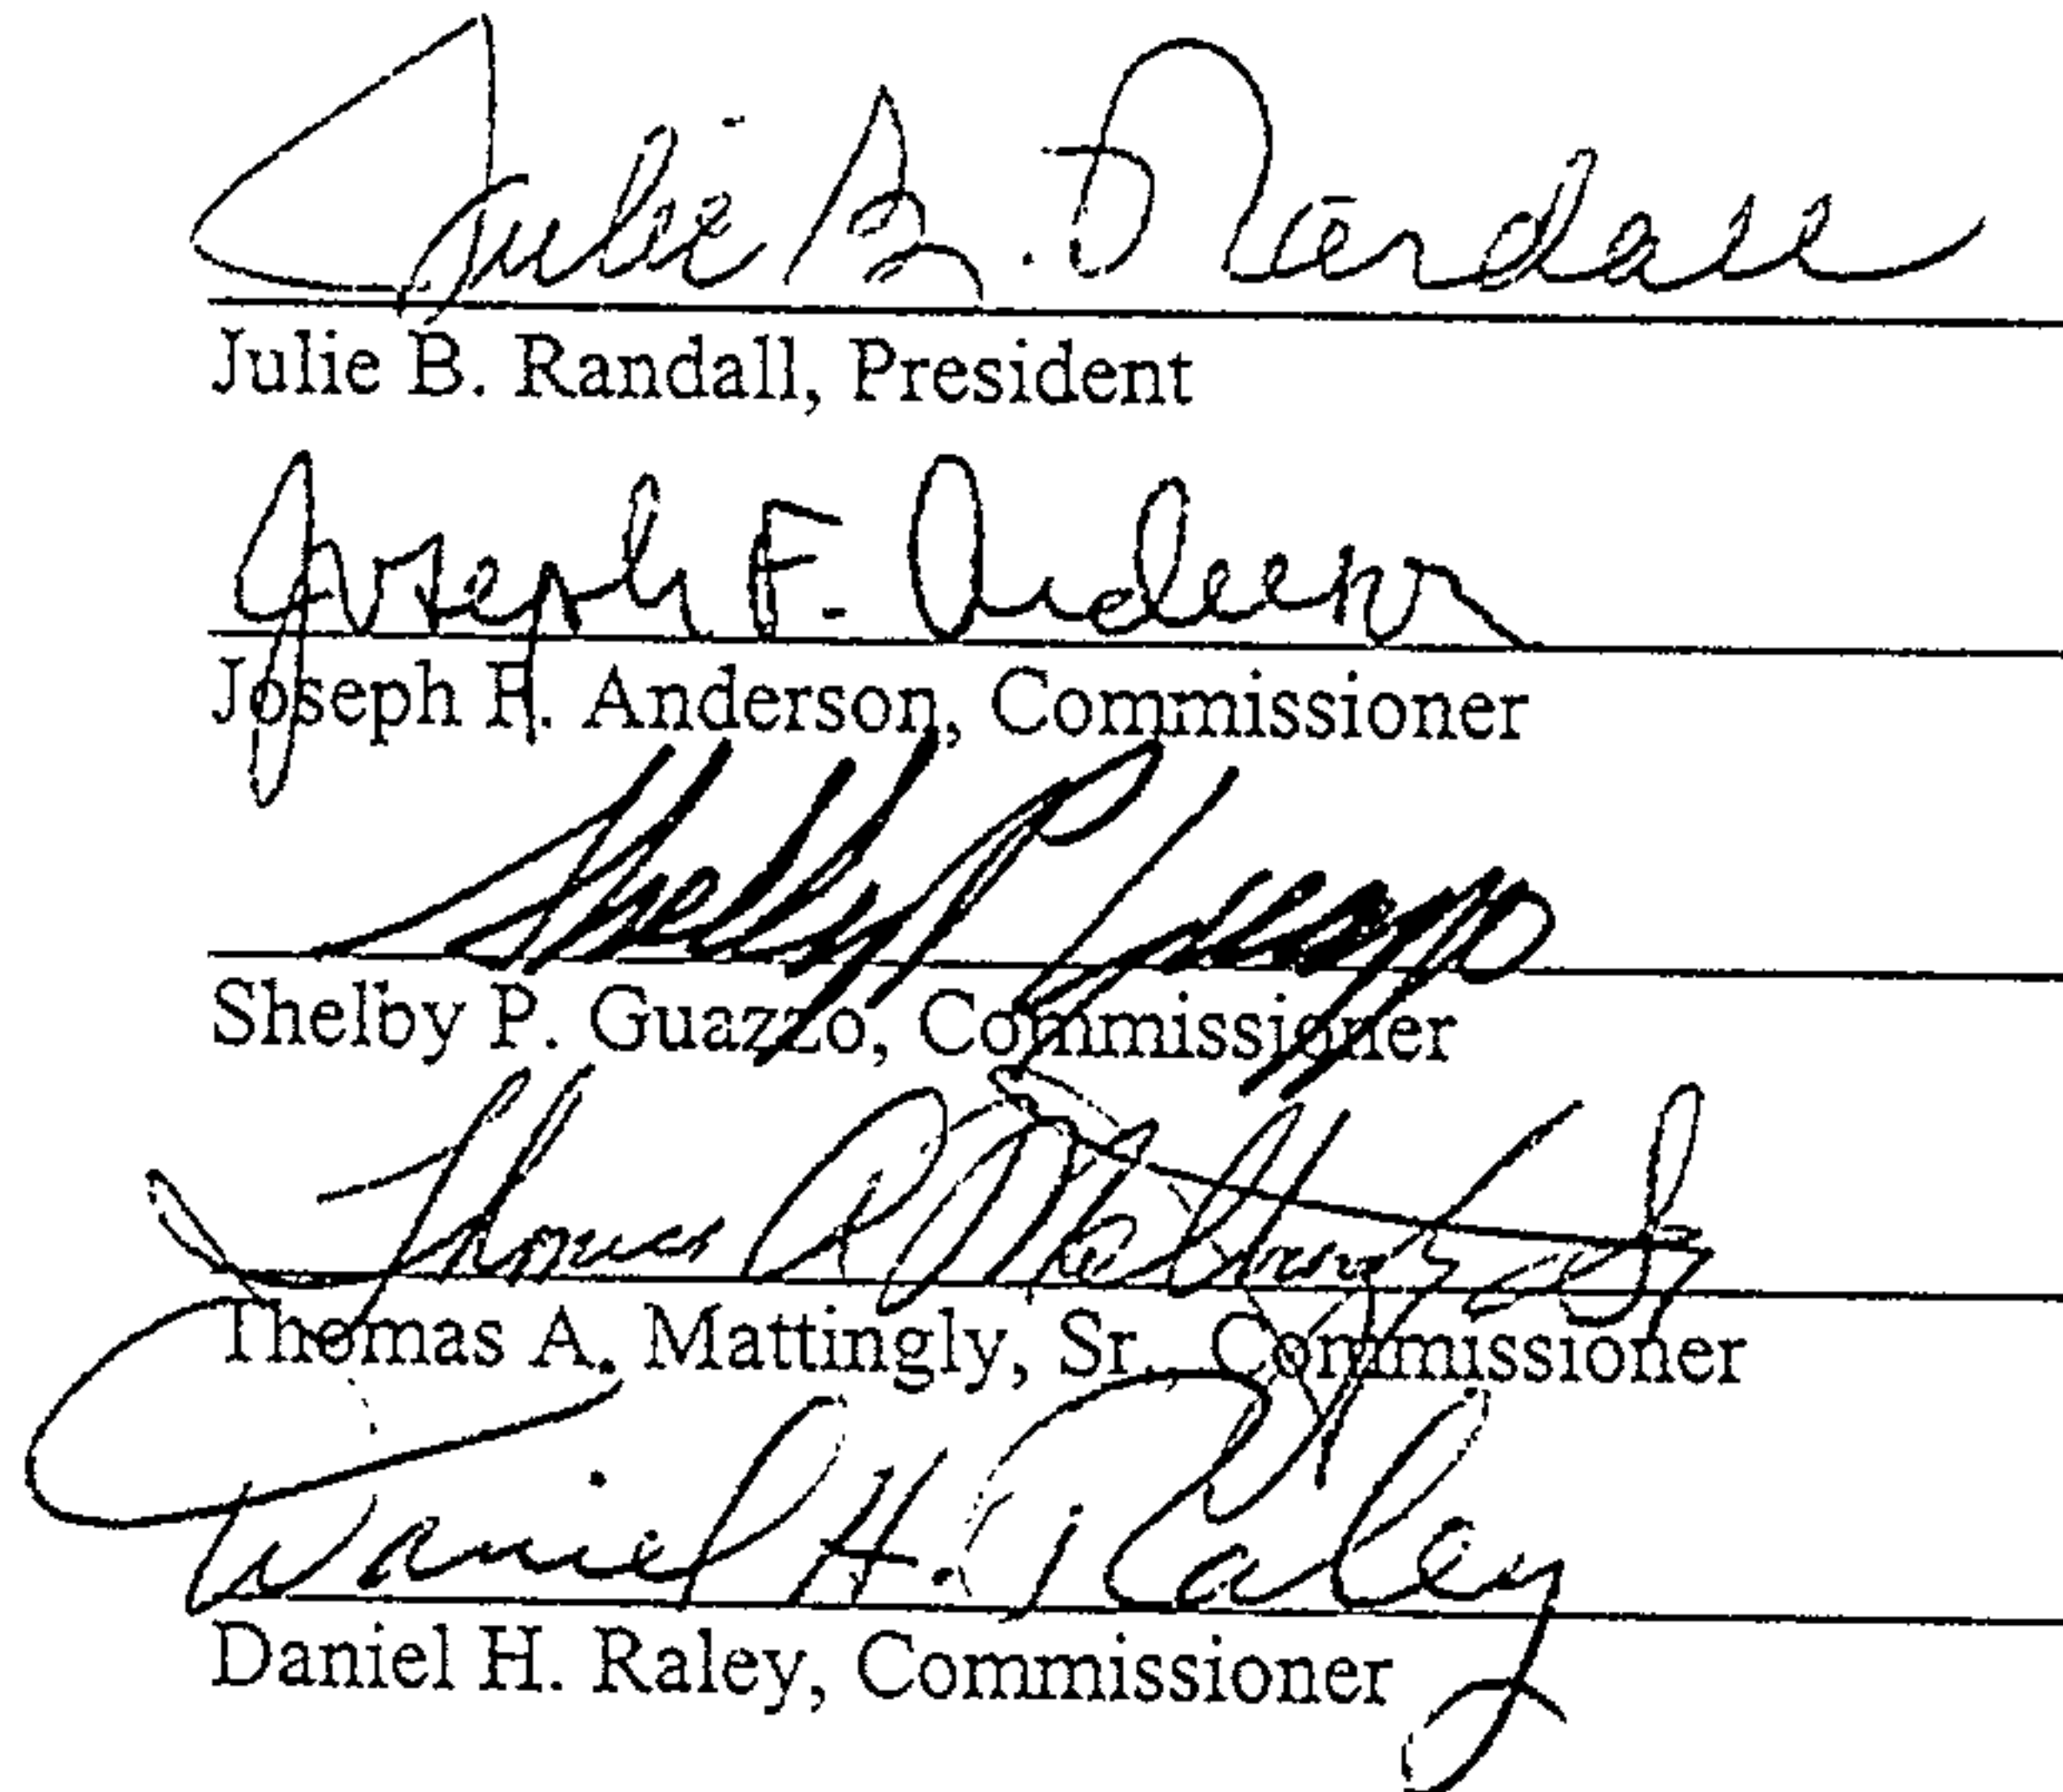 Julie B. Randall
Julie B. Randall, President
Joseph F. Anderson
Joseph F. Anderson, Commissioner
Shelby P. Guazzo
Shelby P. Guazzo, Commissioner
Thomas A. Mattingly, Sr.
Thomas A. Mattingly, Sr., Commissioner
Daniel H. Raley
Daniel H. Raley, Commissioner